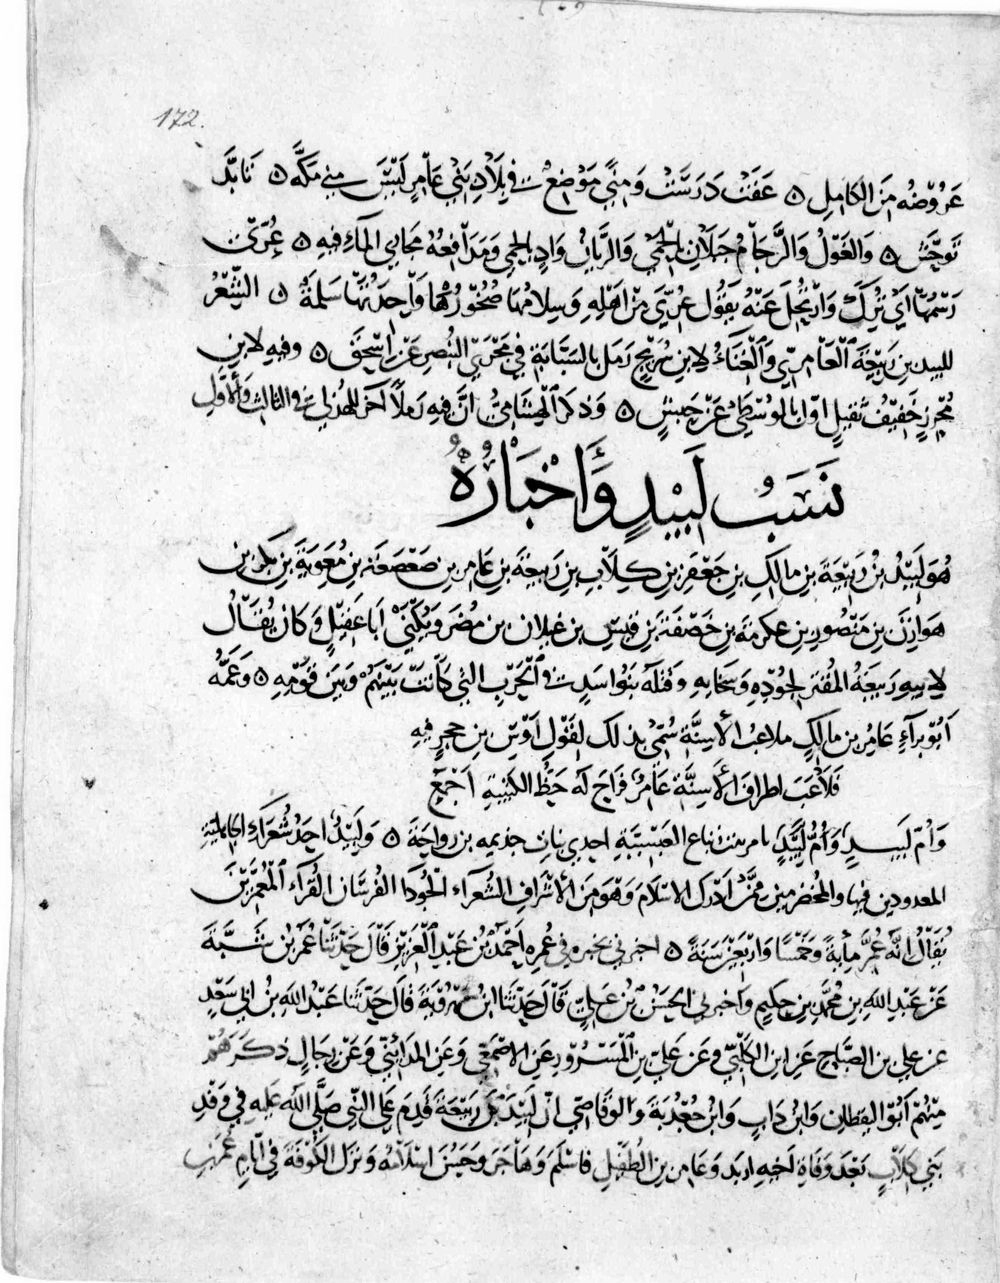 172.
عروضه من الكامل ٥ عفت درست ومنى موضع في بلاد بني عامر ليس منى مكة ٥ تأبد
توحش ٥ والغول والرجام جبلان بالحمى والريان واد بالحمى ومدافعه مجاري الماء فيه ٥ عري
رسمها اي ترك وارتحل عنه يقول عري من اهله وسلامها صخورها واحدتها سلمة ٥ الشعر
للبيد بن ربيعة العامري والغناء لابن سريج رمل بالسبابة في مجرى البنصر عن اسحق ٥ وفيه لابن
محرز خفيف ثقيل اول بالوسطى عن حبش ٥ وذكر الهشامي ان فيه رملا اخر للهذلي في الثالث والأول
نسب لبيد وأخباره
هو لبيد بن ربيعة بن مالك بن جعفر بن كلاب بن ربيعة بن عامر بن صعصعة بن معوية بن بكر بن
هوازن بن منصور بن عكرمة بن خصفة بن قيس بن غيلان بن مضر ويكنى ابا عقيل وكان يقال
لابيه ربيعة المقتر لجوده وسخايه وقتله بنو اسد في الحرب التي كانت بينهم وبين قومه ٥ وعمه
ابو براء عامر بن مالك ملاعب الأسنة سمي بذلك لقول اوس بن حجر فيه
فلاعب اطراف الأسنة عامر فراح له حظ الكتيبة اجمع
وام لبيد وأم لبيد تامر بنت زنباع العبسية احدي بنات جذيمه بن رواحة ٥ ولبيد احد شعراء الجاهلية
المعدودين فيها والمخضرمين ممن ادرك الاسلام وهو من الأشراف الشعراء الجودا الفرسان القراء المعمرين
يقال انه عمر ماية وخمسا واربعين سنة ٥ اخبرني بخبره في عمره احمد بن عبد العزيز قال حدثنا عمر بن شبة
عن عبد الله بن محمد بن حكيم واخبرني الحسن بن علي قال حدثنا ابن مهروية قال حدثنا عبد الله بن ابي سعد
عن علي بن الصباح عن ابن الكلبي وعن علي بن المسرور عن الاصمعي وعن المدائني وعن رجال ذكرهم
منهم ابو اليقظان وابن داب وابن جعدبة والوقاصي ان لبيد بن ربيعة قدم على النبي صلى الله عليه في وفد
بني كلاب بعد وفاة اخيه اربد وعامر بن الطفيل فاسلم وهاجر وحسن اسلامه ونزل الكوفة في ايام عمر بن